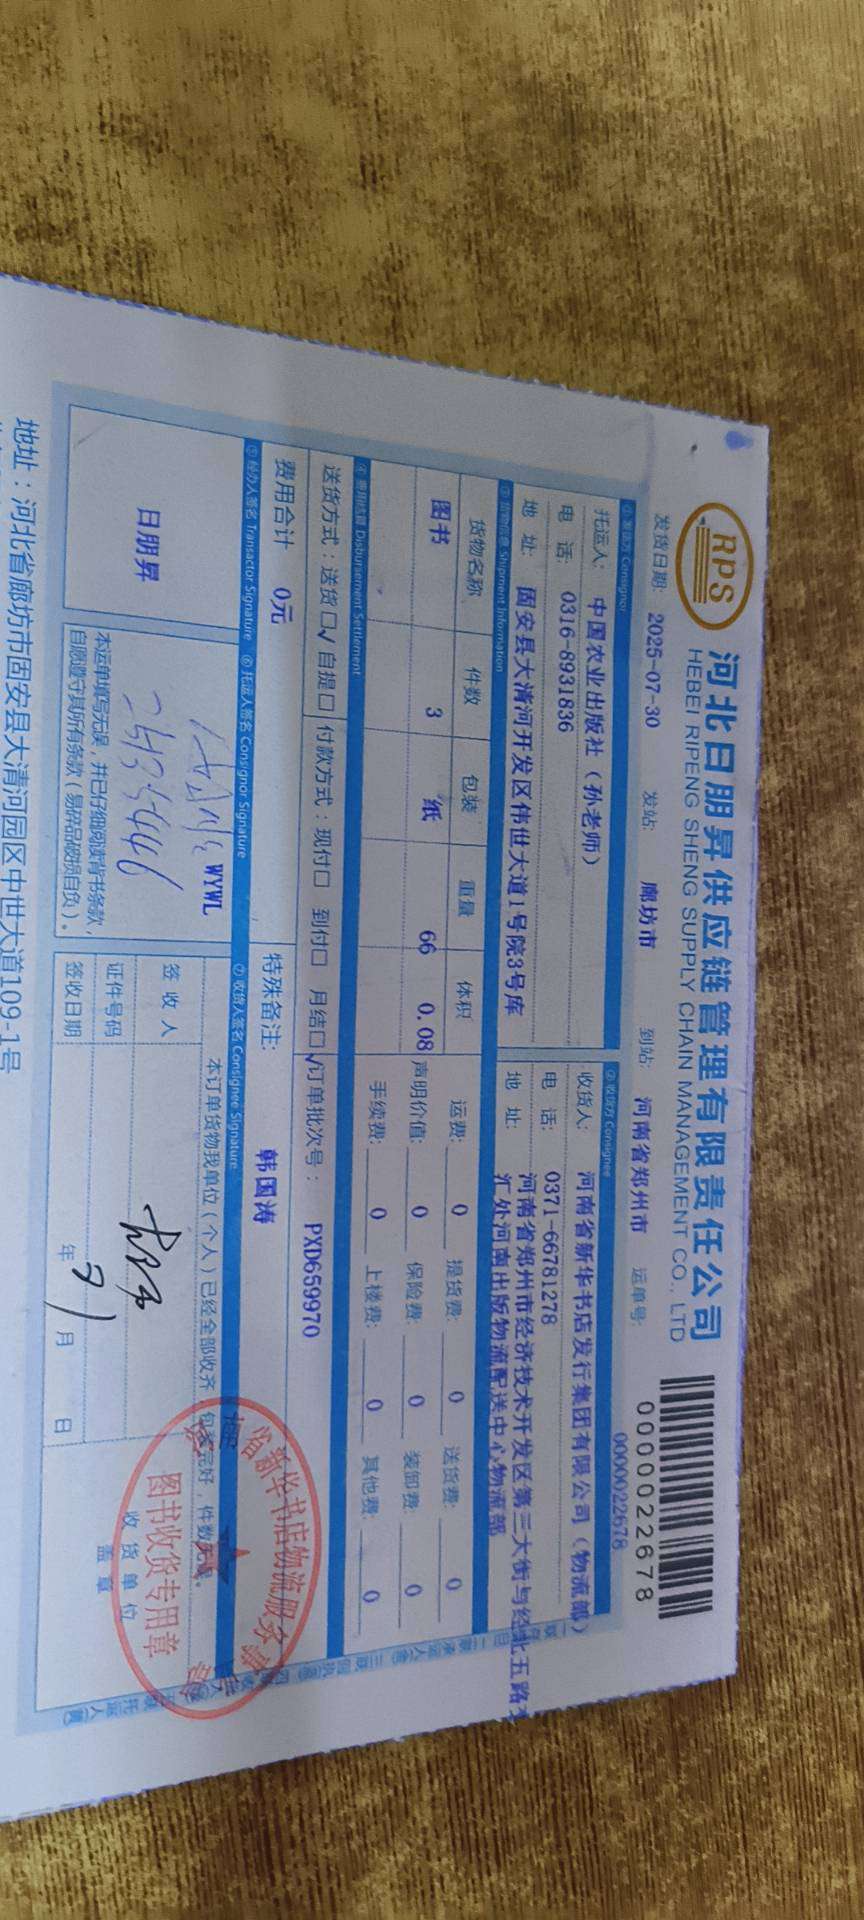 RPS
河北日朋昇供应链管理有限责任公司
HEBEI RIPENG SHENG SUPPLY CHAIN MANAGEMENT CO., LTD
0000022678
发货日期: 2025-07-30 发站: 廊坊市 到站: 河南省郑州市 运单号: 0000022678
① 发货方 Consignor
② 收货方 Consignee
托运人: 中国农业出版社（孙老师）
收货人: 河南省新华书店发行集团有限公司（物流部）
电 话: 0316-8931836
电 话: 0371-66781278
地 址: 固安县大清河开发区伟世大道1号院3号库
地 址: 河南省郑州市经济技术开发区第三大街与经北五路交
汇处河南出版物流配送中心物流部
③ 货物信息 Shipment Information
货物名称 件数 包装 重量 体积
图书 3 纸 66 0.08
运费: 0 提货费: 0 送货费: 0
声明价值: 0 保险费: 0 装卸费: 0
手续费: 0 上楼费: 0 其他费: 0
④ 费用结算 Disbursement Settlement
送货方式：送货□√ 自提□ 付款方式：现付□ 到付□ 月结□√ 订单批次号： PXD659970
费用合计 0元 特殊备注: 韩国涛
⑤ 经办人签名 Transactor Signature ⑥ 托运人签名 Consignor Signature ⑦ 收货人签名 Consignee Signature
日朋昇
WYWL
本运单填写无误，并已仔细阅读背书条款，
自愿遵守其所有条款（易碎品破损自负）。
本订单货物我单位（个人）已经全部收齐，包装完好，件数无误。
签 收 人
证件号码
签收日期 年 月 日
收 货 单 位
盖 章
省新华书店物流服务
图书收货专用章
地址：河北省廊坊市固安县大清河园区中世大道109-1号